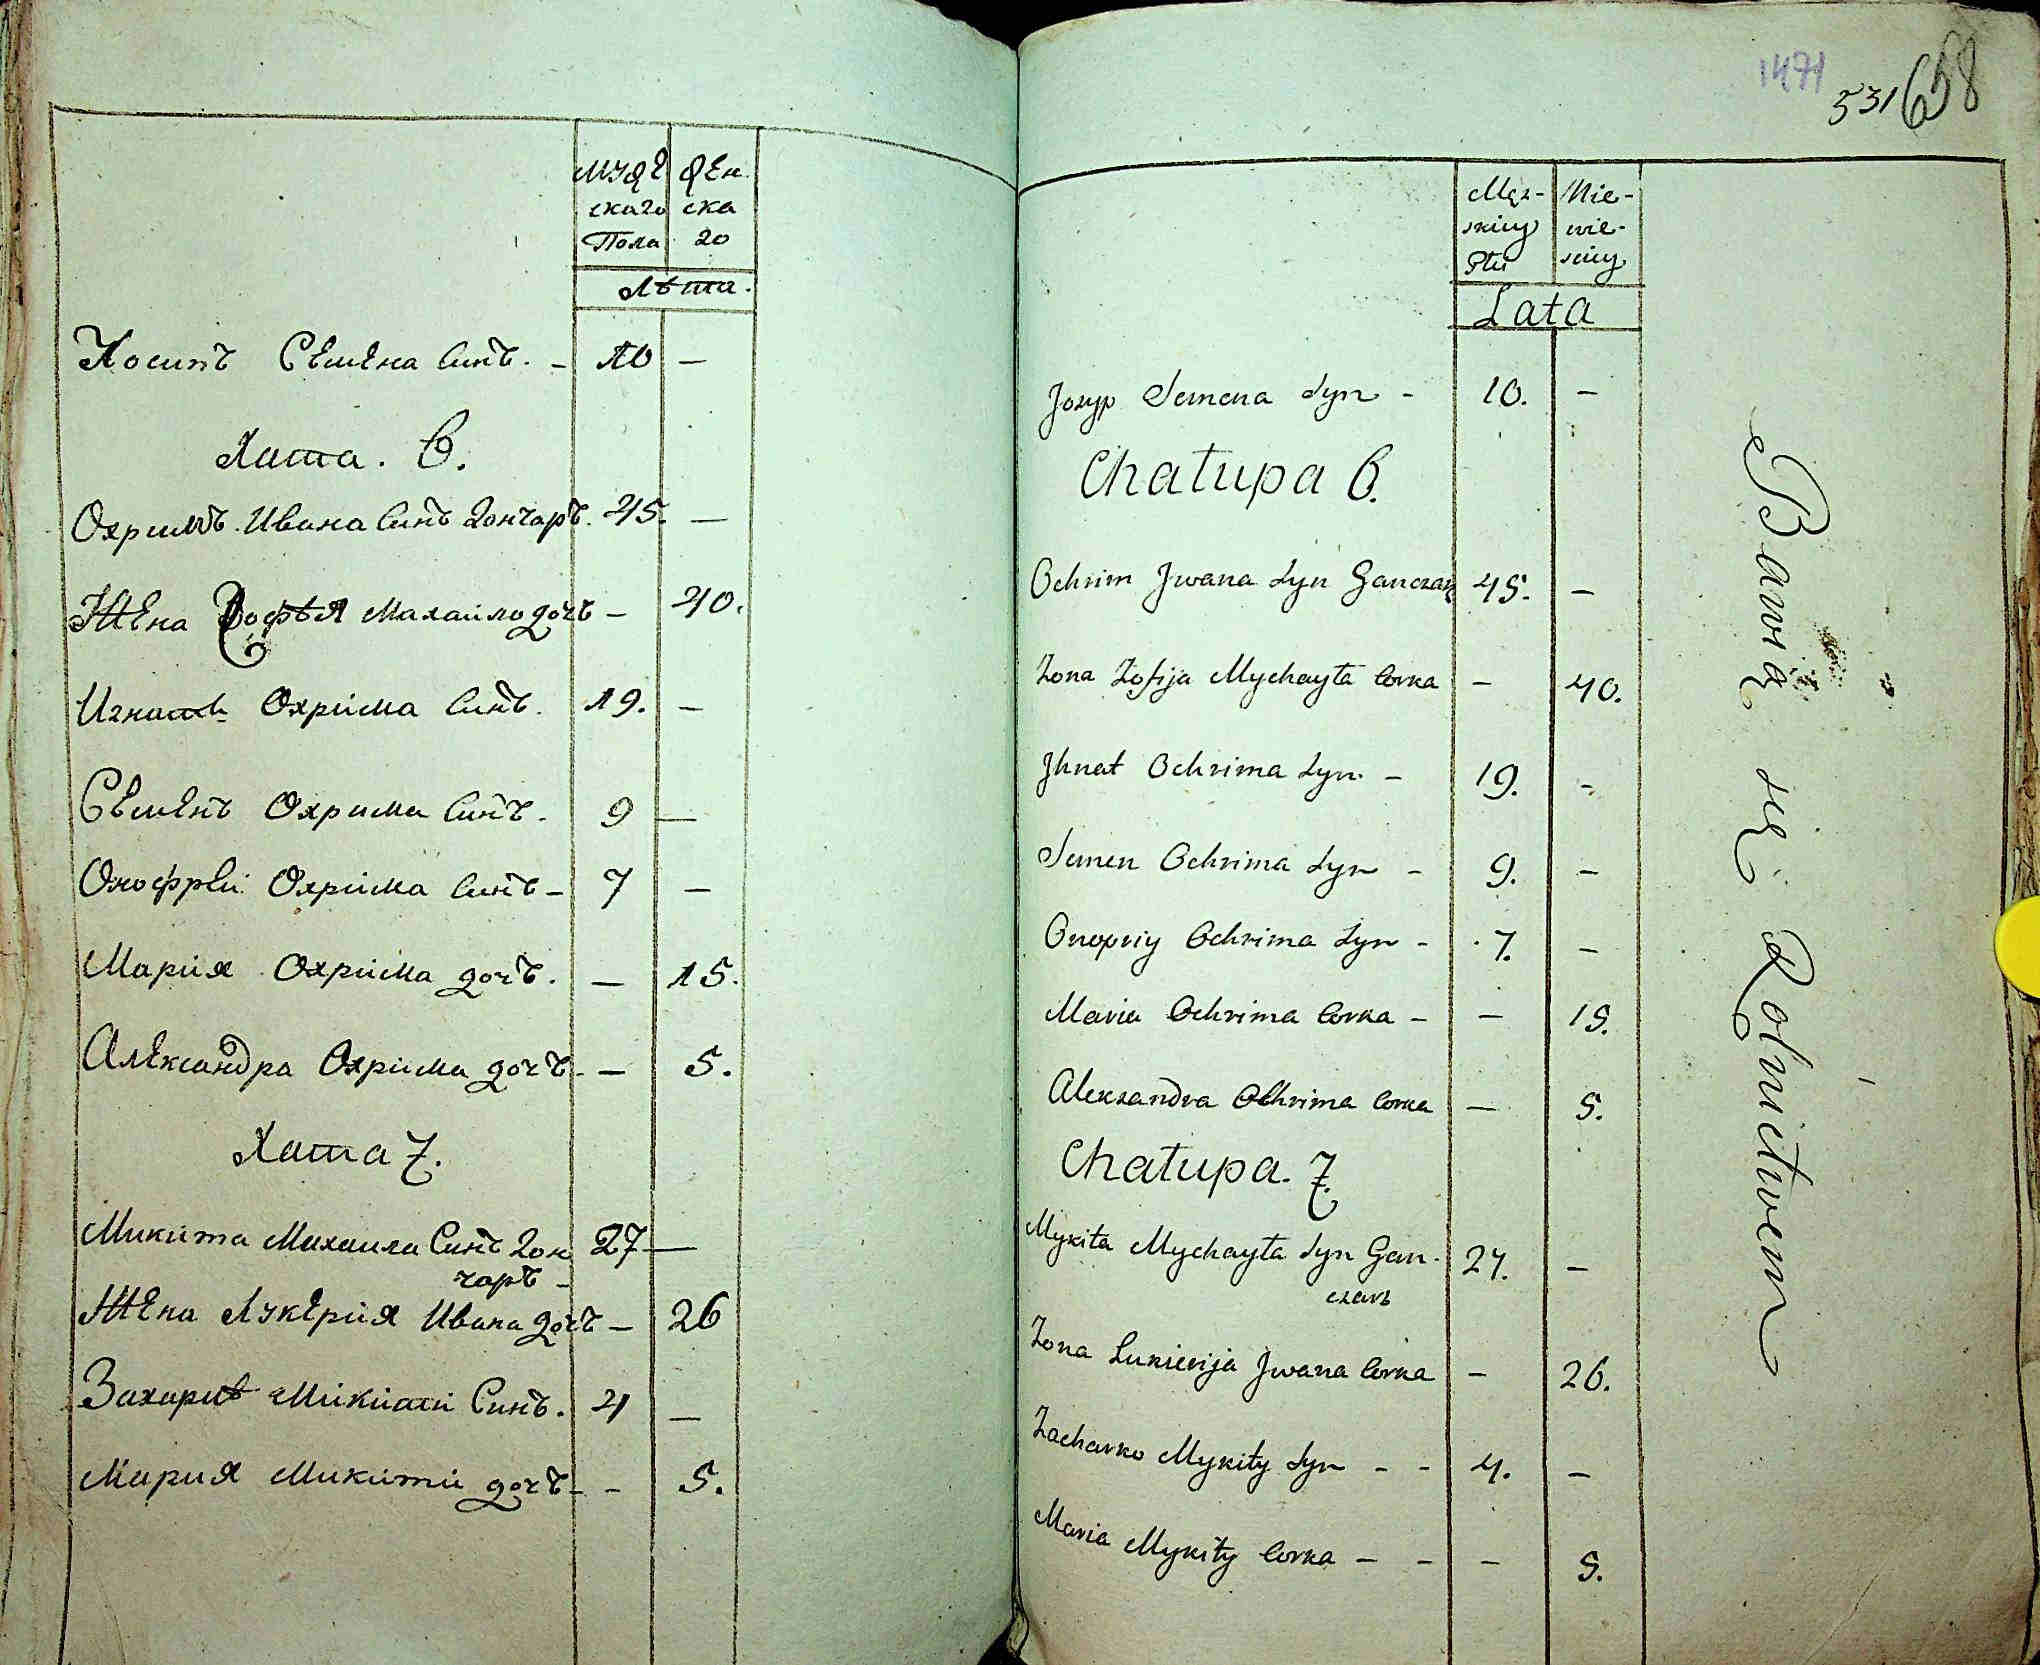 Муже Жен
скаго ска
Пола го
Лѣта.
Иосипъ Семена Синъ. - 10 —
Хата. 6.
Охримъ Ивана Синъ Гончаръ. 45. —
Жена Зофѣя Михаило дочъ — 40.
Игнатъ Охрима Синъ. 19. —
Семенъ Охрима Синъ. 9 —
Онофрей Охрима Синъ - 7 —
Мария Охрима дочъ. — 15.
Александра Охрима дочъ - — 5.
Хата 7.
Микита Михаила Синъ Гон 27 —
чаръ -
Жена Лукерия Ивана дочъ — 26
Захарко Микити Синъ. 4 —
Мария Микити дочъ - - 5.
1471
531 658
Męz- Nie-
skiey wie-
Płci sciey
Lata
Jozyp Semena Syn - 10. —
Chałupa 6.
Ochrim Jwana Syn Ganczarz 45. —
Zona Zofija Mychayła Corka — 40.
Jhnat Ochrima Syn. - 19. -
Semen Ochrima Syn - 9. —
Onopriy Ochrima Syn - 7. —
Maria Ochrima Corka - — 15.
Alexandra Ochrima Corka — 5.
Chałupa. 7.
Mykita Mychayła Syn Gan- 27. —
czarz
Zona Lukierija Jwana Corka — 26.
Zacharko Mykity Syn - - 4. —
Maria Mykity Corka - - — 5.
Bawią się Rolnictwem